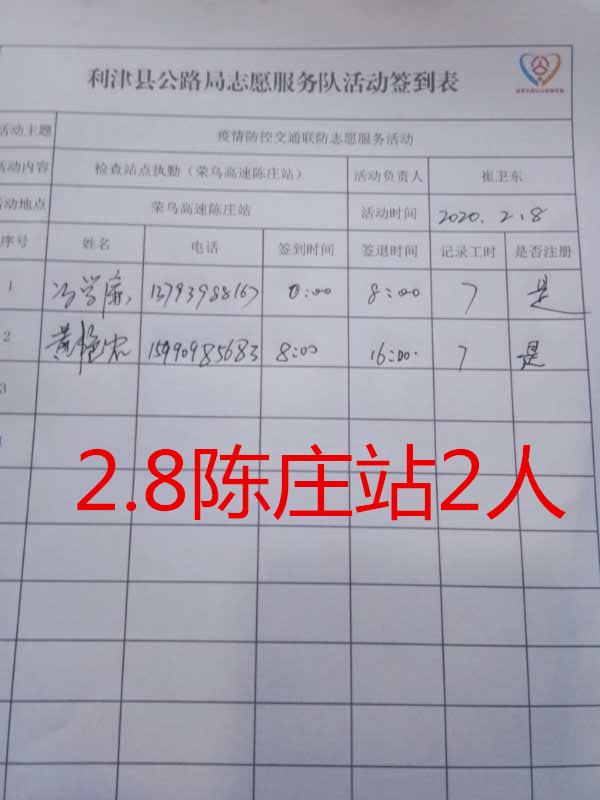 利津县公路局志愿服务队活动签到表
活动主题 疫情防控交通联防志愿服务活动
活动内容 检查站点执勤（荣乌高速陈庄站） 活动负责人 崔卫东
活动地点 荣乌高速陈庄站 活动时间 2020.2.8
序号 姓名 电话 签到时间 签退时间 记录工时 是否注册
1 13793988167 0:00 8:00 7 是
2 15990985683 8:00 16:00. 7 是
3
2.8陈庄站2人